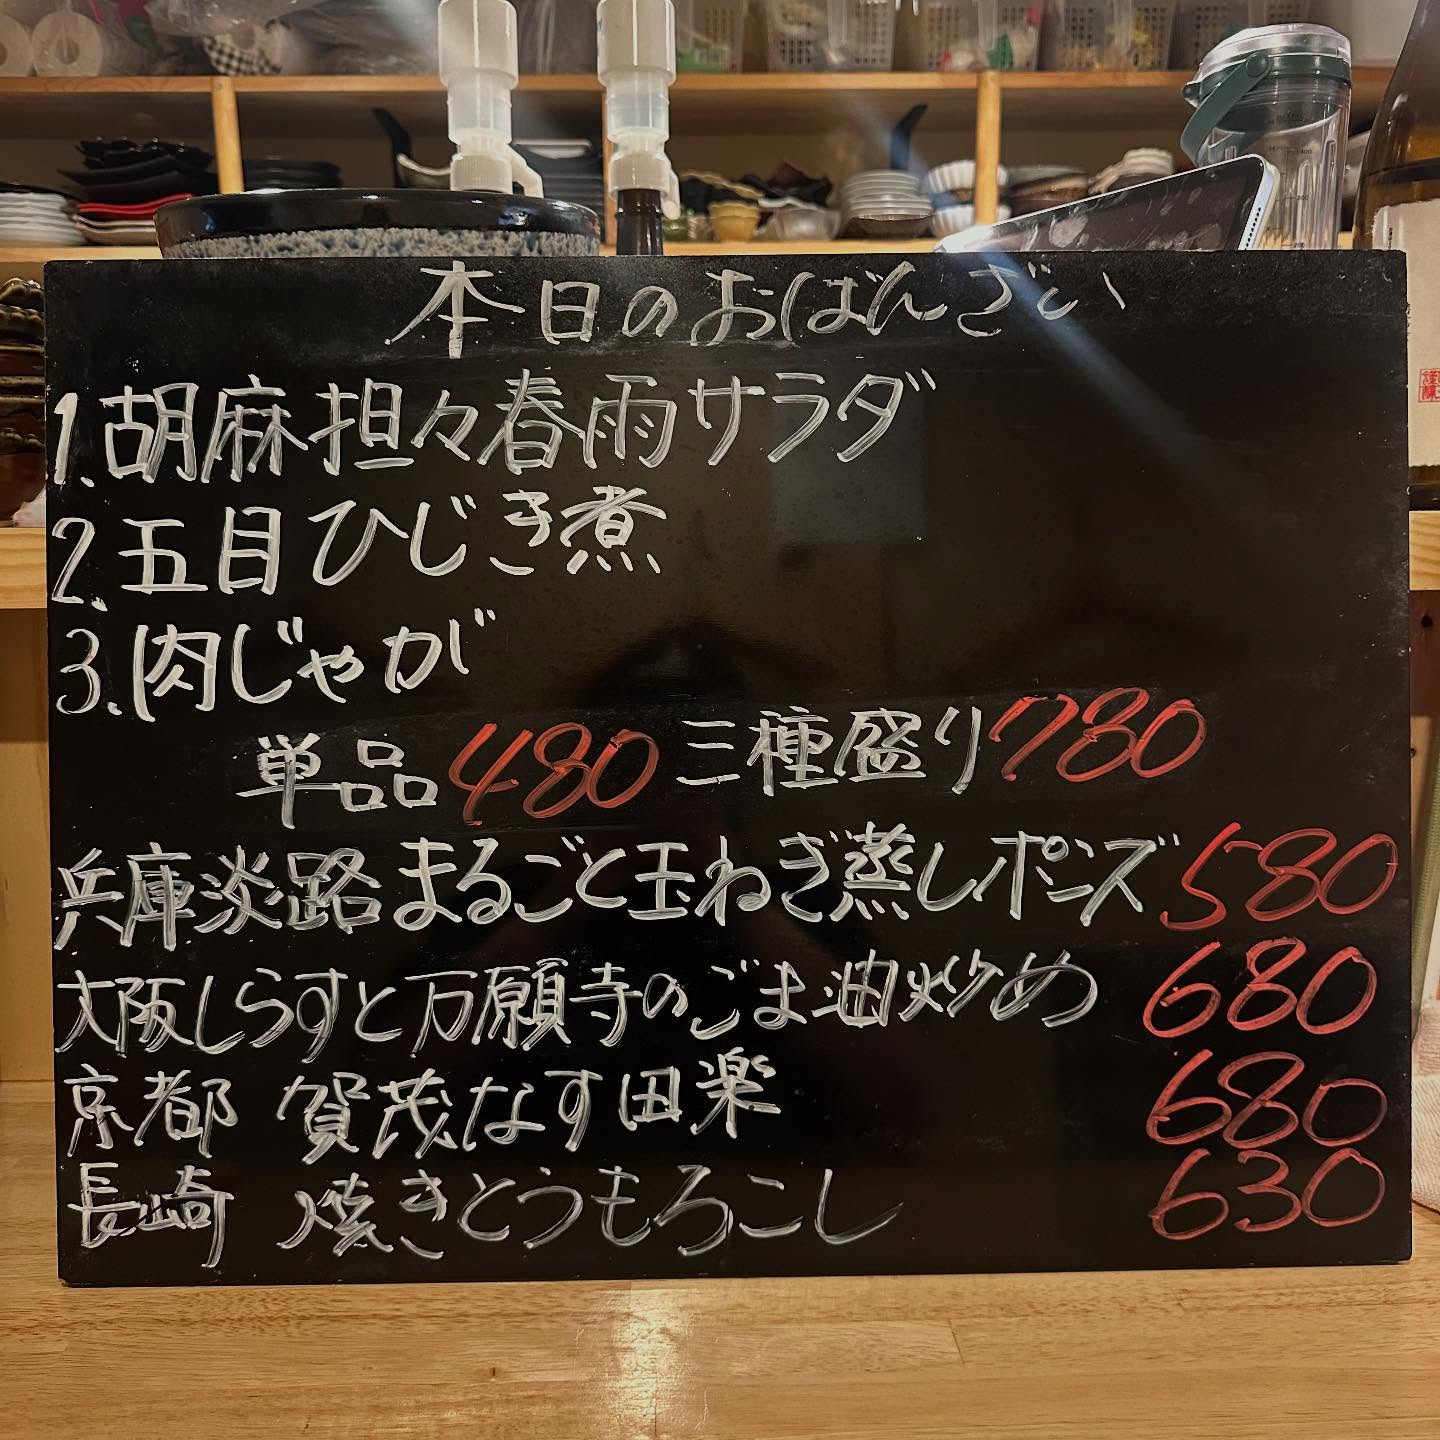 本日のおばんざい
1.胡麻担々春雨サラダ
2.五目ひじき煮
3.肉じゃが
単品480 三種盛り780
兵庫淡路まるごと玉ねぎ蒸しポンズ 580
大阪しらすと万願寺のごま油炒め 680
京都 賀茂なす田楽 680
長崎 焼きとうもろこし 630